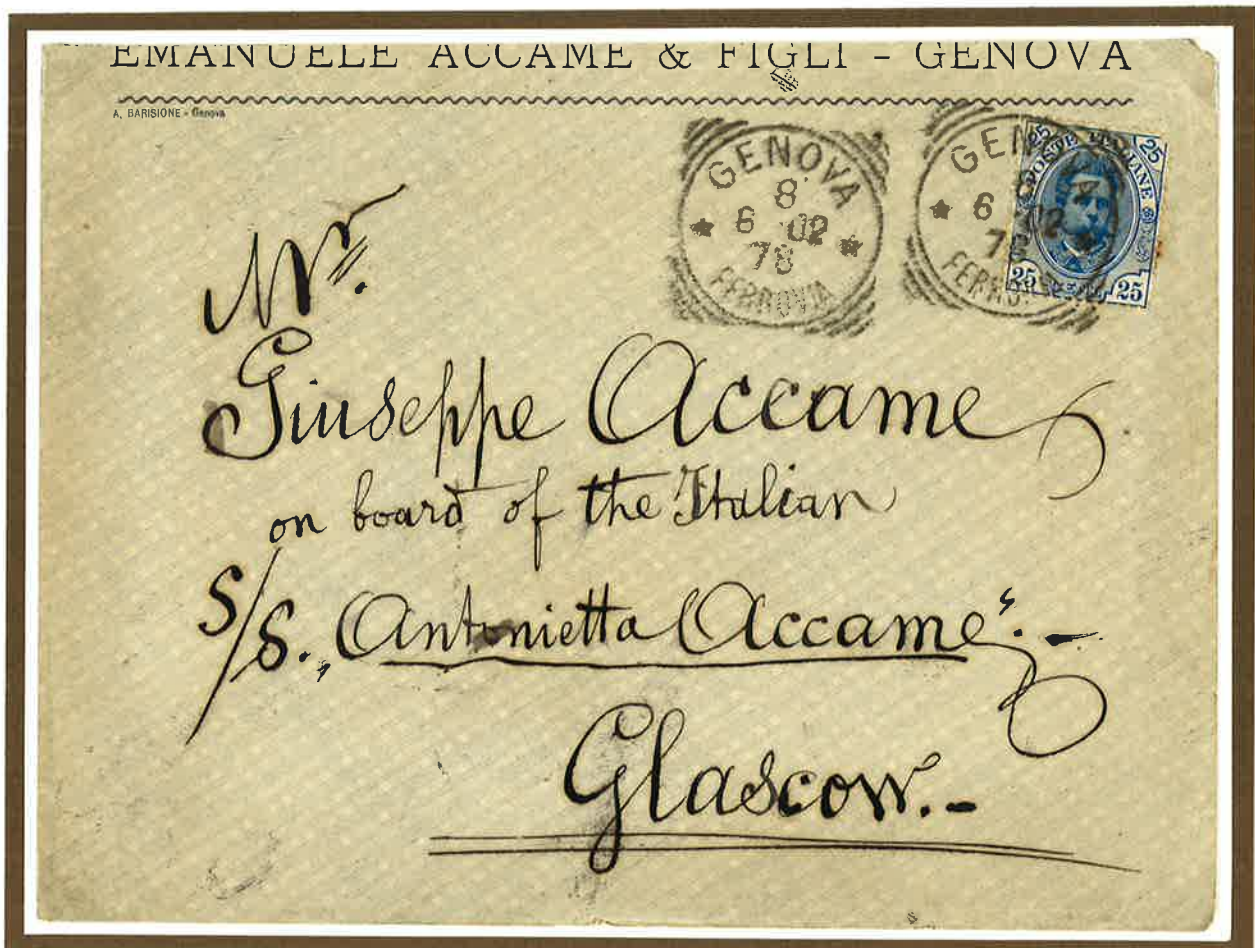 EMANUELE ACCAME & FIGLI - GENOVA
A. BARISIONE - Genova
GENOVA
8
6 02
78
FERROVIA
GEN
6 02
78
FERRO
25 25
POSTE ITALIANE
25 25
Mr.
Giuseppe Accame
on board of the Italian
S/S. „Antonietta Accame“.-
Glascow.-